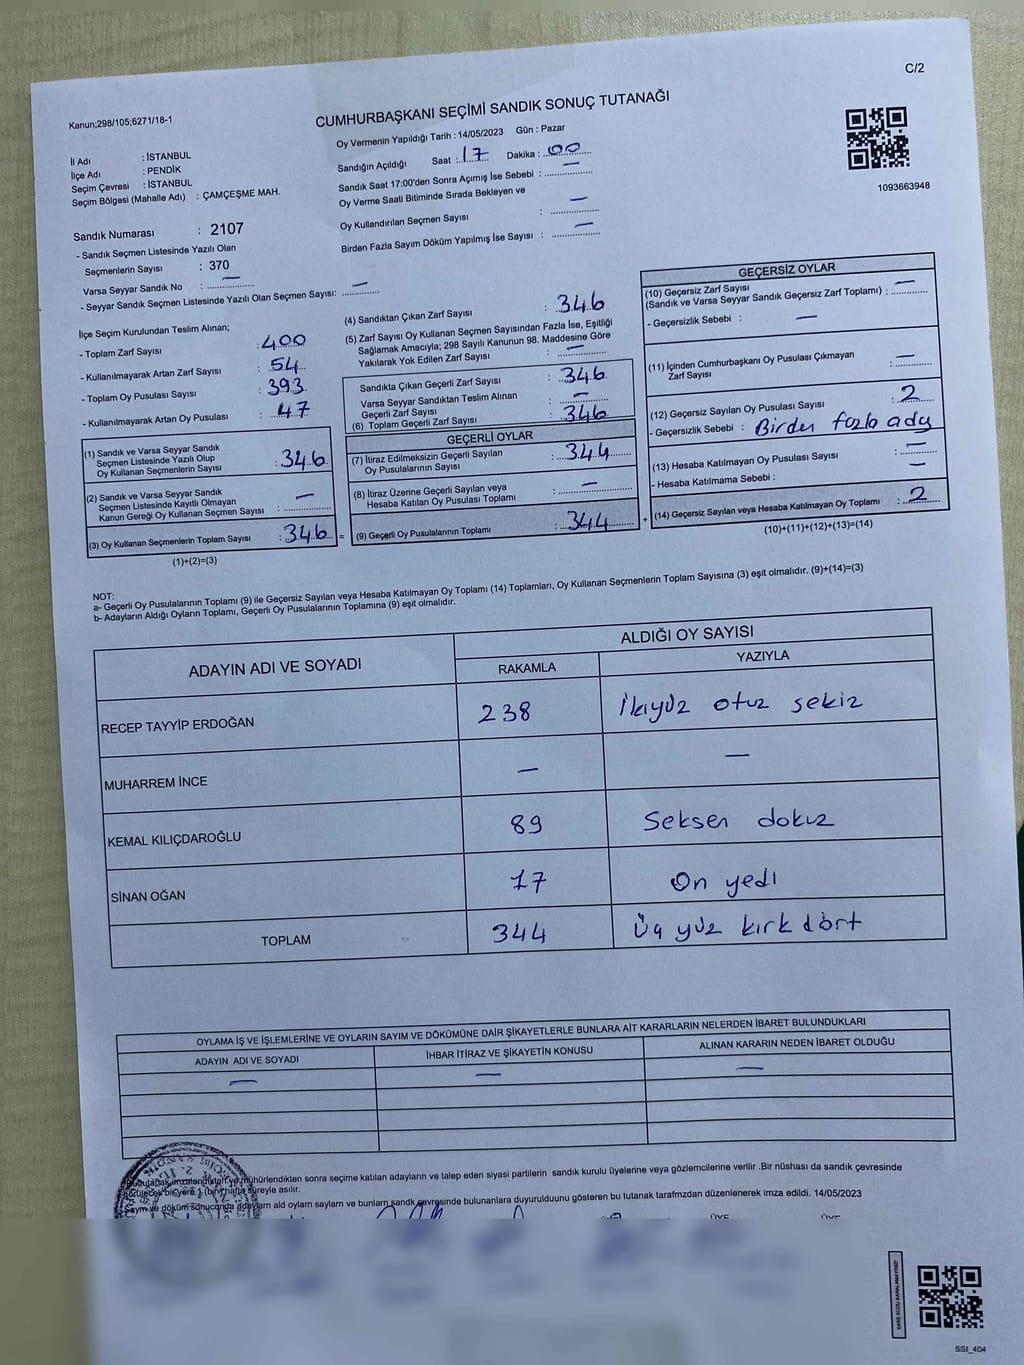 C/2
Kanun;298/105;6271/18-1
CUMHURBAŞKANI SEÇİMİ SANDIK SONUÇ TUTANAĞI
Oy Vermenin Yapıldığı Tarih : 14/05/2023 Gün : Pazar
İl Adı : İSTANBUL
İlçe Adı : PENDİK
Seçim Çevresi : İSTANBUL
Seçim Bölgesi (Mahalle Adı) : ÇAMÇEŞME MAH.
Sandığın Açıldığı Saat : 17 Dakika : 00
Sandık Saat 17:00'den Sonra Açımış İse Sebebi : —
Oy Verme Saati Bitiminde Sırada Bekleyen ve
Oy Kullandırılan Seçmen Sayısı : —
Birden Fazla Sayım Döküm Yapılmış İse Sayısı : —
1093663948
Sandık Numarası : 2107
- Sandık Seçmen Listesinde Yazılı Olan
Seçmenlerin Sayısı : 370
Varsa Seyyar Sandık No : —
- Seyyar Sandık Seçmen Listesinde Yazılı Olan Seçmen Sayısı: —
İlçe Seçim Kurulundan Teslim Alınan;
- Toplam Zarf Sayısı : 400
- Kullanılmayarak Artan Zarf Sayısı : 54
- Toplam Oy Pusulası Sayısı : 393
- Kullanılmayarak Artan Oy Pusulası : 47
(1) Sandık ve Varsa Seyyar Sandık
Seçmen Listesinde Yazılı Olup
Oy Kullanan Seçmenlerin Sayısı : 346
(2) Sandık ve Varsa Seyyar Sandık
Seçmen Listesinde Kayıtlı Olmayan
Kanun Gereği Oy Kullanan Seçmen Sayısı : —
(3) Oy Kullanan Seçmenlerin Toplam Sayısı : 346 =
(1)+(2)=(3)
(4) Sandıktan Çıkan Zarf Sayısı : 346
(5) Zarf Sayısı Oy Kullanan Seçmen Sayısından Fazla İse, Eşitliği
Sağlamak Amacıyla; 298 Sayılı Kanunun 98. Maddesine Göre
Yakılarak Yok Edilen Zarf Sayısı : —
Sandıkta Çıkan Geçerli Zarf Sayısı : 346
Varsa Seyyar Sandıktan Teslim Alınan
Geçerli Zarf Sayısı : —
(6) Toplam Geçerli Zarf Sayısı : 346
GEÇERLİ OYLAR
(7) İtiraz Edilmeksizin Geçerli Sayılan
Oy Pusulalarının Sayısı : 344
(8) İtiraz Üzerine Geçerli Sayılan veya
Hesaba Katılan Oy Pusulası Toplamı : —
(9) Geçerli Oy Pusulalarının Toplamı : 344 +
GEÇERSİZ OYLAR
(10) Geçersiz Zarf Sayısı
(Sandık ve Varsa Seyyar Sandık Geçersiz Zarf Toplamı) : —
- Geçersizlik Sebebi : —
(11) İçinden Cumhurbaşkanı Oy Pusulası Çıkmayan
Zarf Sayısı : —
(12) Geçersiz Sayılan Oy Pusulası Sayısı : 2
- Geçersizlik Sebebi : Birden fazla aday
(13) Hesaba Katılmayan Oy Pusulası Sayısı : —
- Hesaba Katılmama Sebebi : —
(14) Geçersiz Sayılan veya Hesaba Katılmayan Oy Toplamı : 2
(10)+(11)+(12)+(13)=(14)
NOT:
a- Geçerli Oy Pusulalarının Toplamı (9) ile Geçersiz Sayılan veya Hesaba Katılmayan Oy Toplamı (14) Toplamları, Oy Kullanan Seçmenlerin Toplam Sayısına (3) eşit olmalıdır. (9)+(14)=(3)
b- Adayların Aldığı Oyların Toplamı, Geçerli Oy Pusulalarının Toplamına (9) eşit olmalıdır.
ADAYIN ADI VE SOYADI
ALDIĞI OY SAYISI
RAKAMLA YAZIYLA
RECEP TAYYİP ERDOĞAN 238 İkiyüz otuz sekiz
MUHARREM İNCE — —
KEMAL KILIÇDAROĞLU 89 Seksen dokuz
SİNAN OĞAN 17 On yedi
TOPLAM 344 Üç yüz kırk dört
OYLAMA İŞ VE İŞLEMLERİNE VE OYLARIN SAYIM VE DÖKÜMÜNE DAİR ŞİKAYETLERLE BUNLARA AİT KARARLARIN NELERDEN İBARET BULUNDUKLARI
ADAYIN ADI VE SOYADI İHBAR İTİRAZ VE ŞİKAYETİN KONUSU ALINAN KARARIN NEDEN İBARET OLDUĞU
— — —
mühürlendikten sonra seçime katılan adayların ve talep eden siyasi partilerin sandık kurulu üyelerine veya gözlemcilerine verilir .Bir nüshası da sandık çevresinde
görülecek bir yere 1 (bir) hafta süreyle asılır.
Sayım ve döküm sonucunda adayların aldı oyların sayları ve bunların sandk çevresinde bulunanlara duyurulduunu gösteren bu tutanak tarafmzdan düzenlenerek imza edildi. 14/05/2023
ÜYE ÜYE
KARE KODU KARALAMAYINIZ!
SSI_404